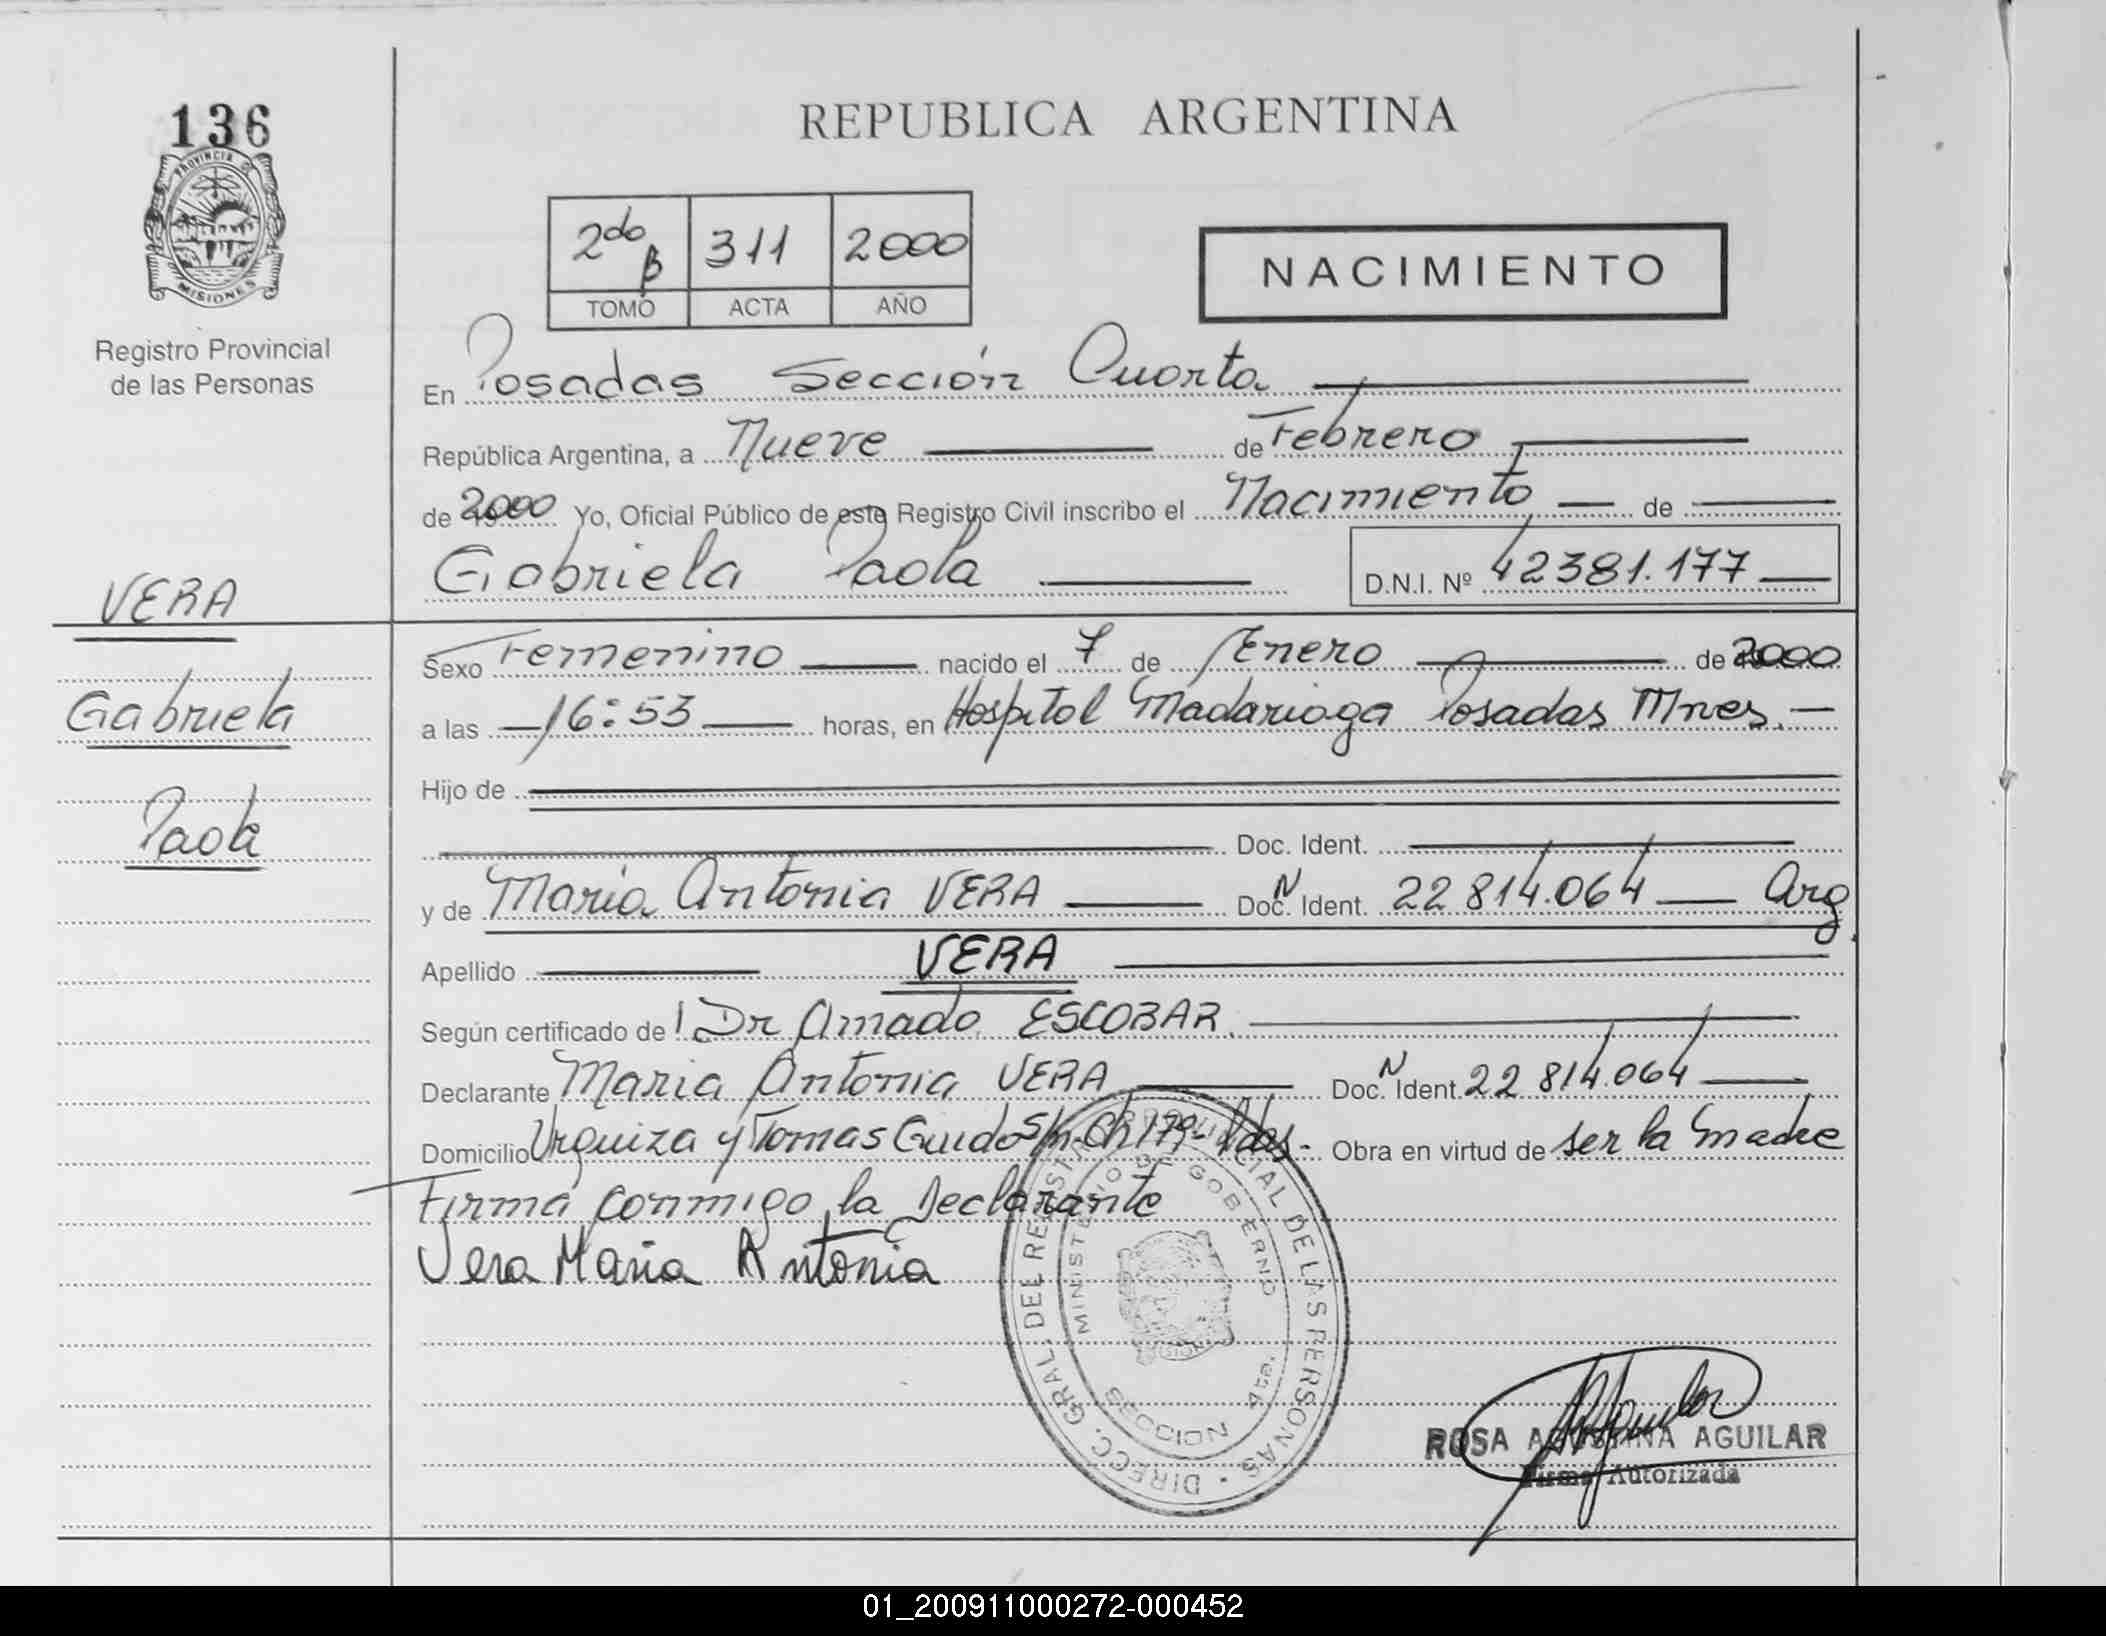 136
PROVINCIA D
MISIONES
Registro Provincial
de las Personas
REPUBLICA ARGENTINA
2do B 311 2000
TOMO ACTA AÑO
NACIMIENTO
En Posadas Sección Cuarta
República Argentina, a Nueve de Febrero
de 2000 Yo, Oficial Público de este Registro Civil inscribo el Nacimiento de
Gabriela Paola D.N.I. Nº 42381.177
VERA
Gabriela
Paola
Sexo Femenino nacido el 7 de Enero de 2000
a las 16:53 horas, en Hospital Madariaga Posadas Mnes.
Hijo de
Doc. Ident.
y de Maria Antonia VERA Doc. N Ident. 22 814.064 Arg.
Apellido VERA
Según certificado de Dr Amado ESCOBAR.
Declarante Maria Antonia VERA Doc. N Ident. 22 814.064
Domicilio Urquiza y Tomas Guido S/n-Ch 179- Obra en virtud de ser la Madre
Firma conmigo la Declarante
Vera Maria Antonia
DIRECC. GRAL. DEL REGISTRO PROVINCIAL DE LAS PERSONAS
MINISTERIO DE GOBIERNO
SECCION 4ta.
ROSA AGUSTINA AGUILAR
Firma Autorizada
01_200911000272-000452